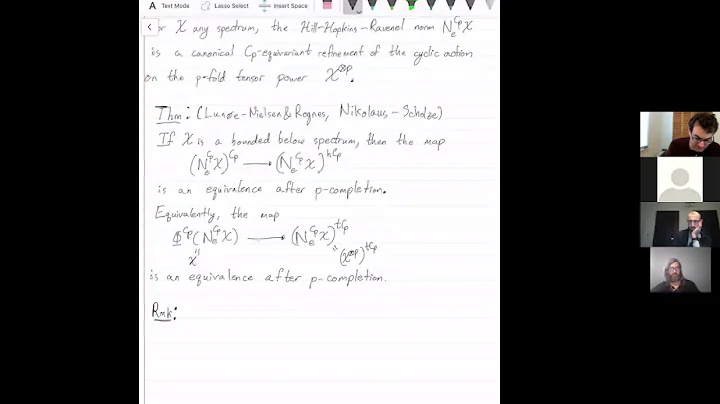 A Text Mode Lasso Select Insert Space
or X any spectrum, the Hill-Hopkins-Ravenel norm N_e^{Cp} X
is a canonical Cp-equivariant refinement of the cyclic action
on the p-fold tensor power X^{⊗p}.
Thm: (Lunøe-Nielsen & Rognes, Nikolaus-Scholze)
If X is a bounded below spectrum, then the map
(N_e^{Cp} X)^{Cp} ⟶ (N_e^{Cp} X)^{hCp}
is an equivalence after p-completion.
Equivalently, the map
Φ^{Cp}(N_e^{Cp} X) ⟶ (N_e^{Cp} X)^{tCp}
X (X^{⊗p})^{tCp}
is an equivalence after p-completion.
Rmk: